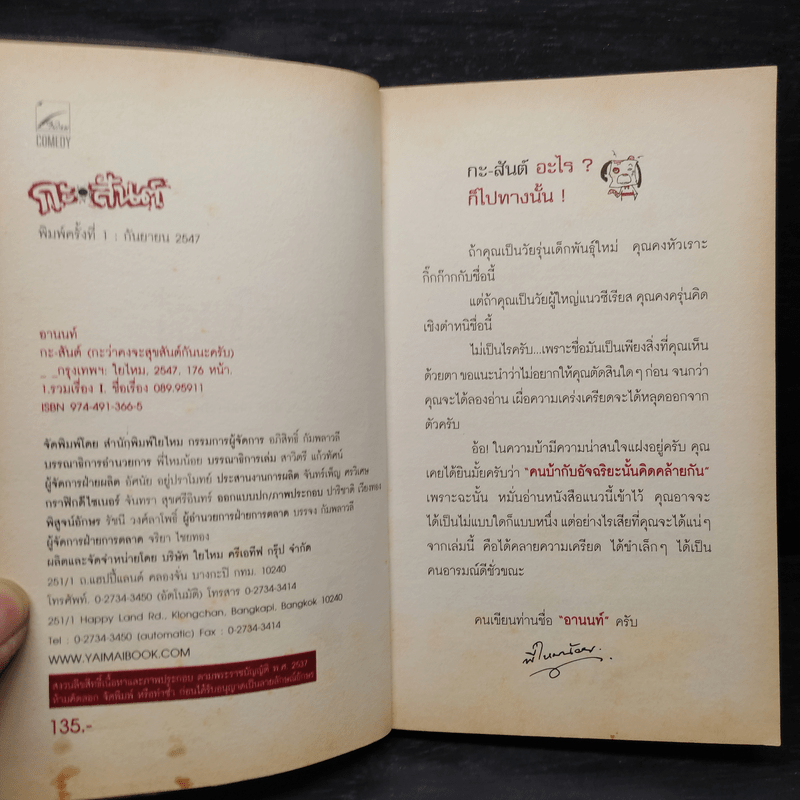 COMEDY
กะ-สันต์
พิมพ์ครั้งที่ 1 : กันยายน 2547
อานนท์
กะ-สันต์ (กะว่าคงจะสุขสันต์กันนะครับ)
_ _กรุงเทพฯ: ใยไหม, 2547, 176 หน้า.
1.รวมเรื่อง I. ชื่อเรื่อง 089.95911
ISBN 974-491-366-5
จัดพิมพ์โดย สำนักพิมพ์ใยไหม กรรมการผู้จัดการ อภิสิทธิ์ กัมพลาวลี
บรรณาธิการอำนวยการ พี่ใหมน้อย บรรณาธิการเล่ม สาวิตรี แก้วทัศน์
ผู้จัดการฝ่ายผลิต อัศนัย อยู่ปราโมทย์ ประสานงานการผลิต จันทร์เพ็ญ ศรวิเศษ
กราฟิกดีไซเนอร์ จันทรา สุขศรีอินทร์ ออกแบบปก/ภาพประกอบ ปาริชาติ เวียงทอง
พิสูจน์อักษร รัชนี วงค์ลาโพธิ์ ผู้อำนวยการฝ่ายการตลาด บรรจง กัมพลาวลี
ผู้จัดการฝ่ายการตลาด จริยา ไชยทอง
ผลิตและจัดจำหน่ายโดย บริษัท ใยไหม ครีเอทีฟ กรุ๊ป จำกัด
251/1 ถ.แฮปปี้แลนด์ คลองจั่น บางกะปิ กทม. 10240
โทรศัพท์. 0-2734-3450 (อัตโนมัติ) โทรสาร 0-2734-3414
251/1 Happy Land Rd., Klongchan, Bangkapi, Bangkok 10240
Tel : 0-2734-3450 (automatic) Fax : 0-2734-3414
WWW.YAIMAIBOOK.COM
สงวนลิขสิทธิ์เนื้อหาและภาพประกอบ ตามพระราชบัญญัติ พ.ศ. 2537
ห้ามคัดลอก จัดพิมพ์ หรือทำซ้ำ ก่อนได้รับอนุญาตเป็นลายลักษณ์อักษร
135.-
กะ-สันต์ อะไร ?
ก็ไปทางนั้น !
ถ้าคุณเป็นวัยรุ่นเด็กพันธุ์ใหม่ คุณคงหัวเราะ
กิ๊กก๊ากกับชื่อนี้
แต่ถ้าคุณเป็นวัยผู้ใหญ่แนวซีเรียส คุณคงครุ่นคิด
เชิงตำหนิชื่อนี้
ไม่เป็นไรครับ...เพราะชื่อมันเป็นเพียงสิ่งที่คุณเห็น
ด้วยตา ขอแนะนำว่าไม่อยากให้คุณตัดสินใดๆ ก่อน จนกว่า
คุณจะได้ลองอ่าน เผื่อความเคร่งเครียดจะได้หลุดออกจาก
ตัวครับ
อ้อ! ในความบ้ามีความน่าสนใจแฝงอยู่ครับ คุณ
เคยได้ยินมั้ยครับว่า "คนบ้ากับอัจฉริยะนั้นคิดคล้ายกัน"
เพราะฉะนั้น หมั่นอ่านหนังสือแนวนี้เข้าไว้ คุณอาจจะ
ได้เป็นไม่แบบใดก็แบบหนึ่ง แต่อย่างไรเสียที่คุณจะได้แน่ๆ
จากเล่มนี้ คือได้คลายความเครียด ได้ขำเล็กๆ ได้เป็น
คนอารมณ์ดีชั่วขณะ
คนเขียนท่านชื่อ "อานนท์" ครับ
พี่ใหมน้อย.